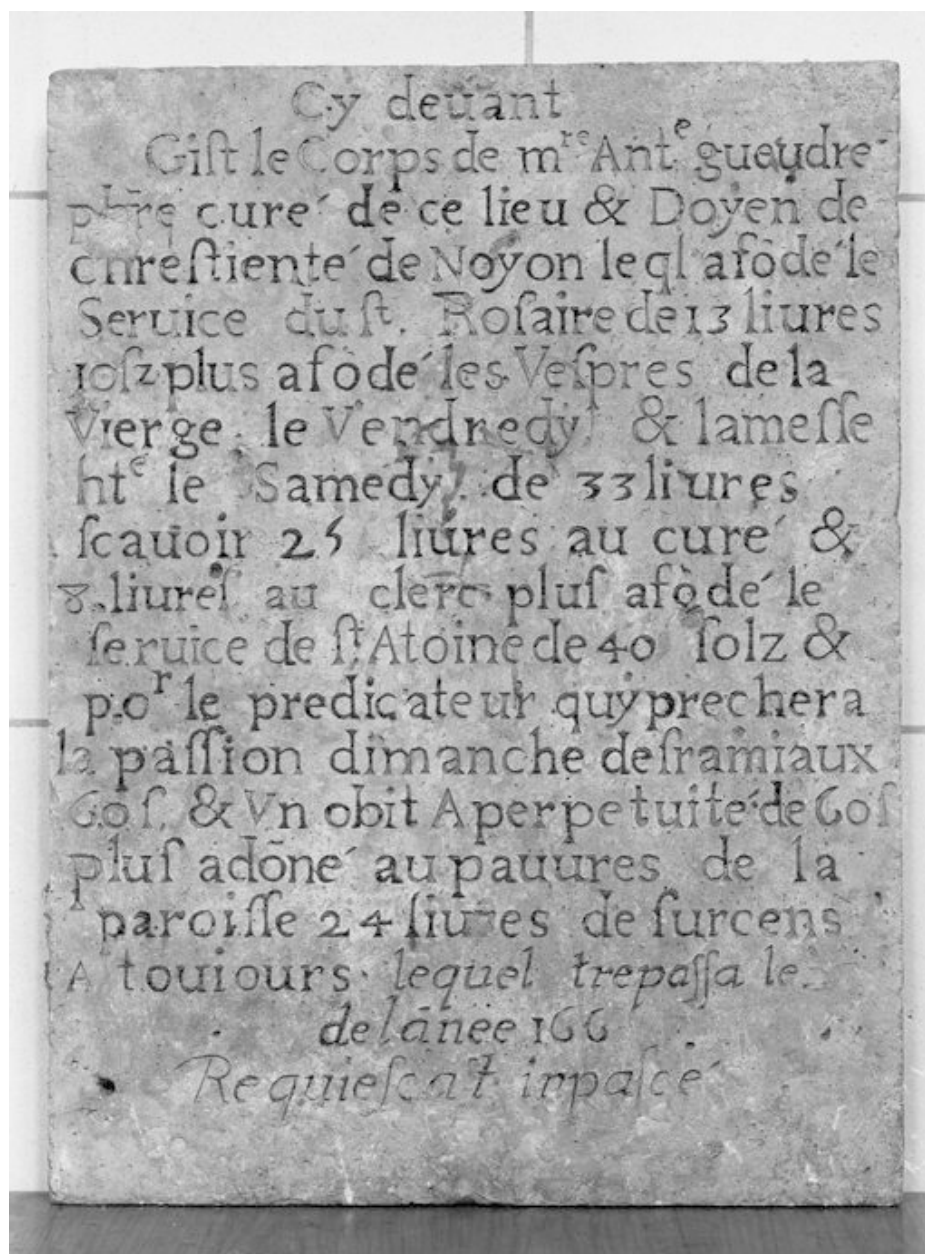 Cy deuant
Giſt le Corps de mʳᵉ Antᵉ gueudre
pb̄rē curé de ce lieu & Doyen de
chreſtienté de Noyon leql afōdé le
Seruice du ſt. Roſaire de 13 liures
10ſz plus afōdé les Veſpres dela
Vierge le Vendredy & lameſſe
htᵉ le Samedy de 33 liures
ſcauoir 25 liures au curé &
8 liureſ au clerc pluſ afōdé le
ſeruice de ſt Atoine de 40 ſolz &
poʳ le predicateur quy prechera
la paſſion dimanche deſramiaux
60ſ. & Vn obit A perpetuité de 60ſ
pluſ adōné au pauures de la
paroiſſe 24 liures de ſurcens
A touiours lequel trepaſſa le
de lānee 166
Requieſcat inpaſce